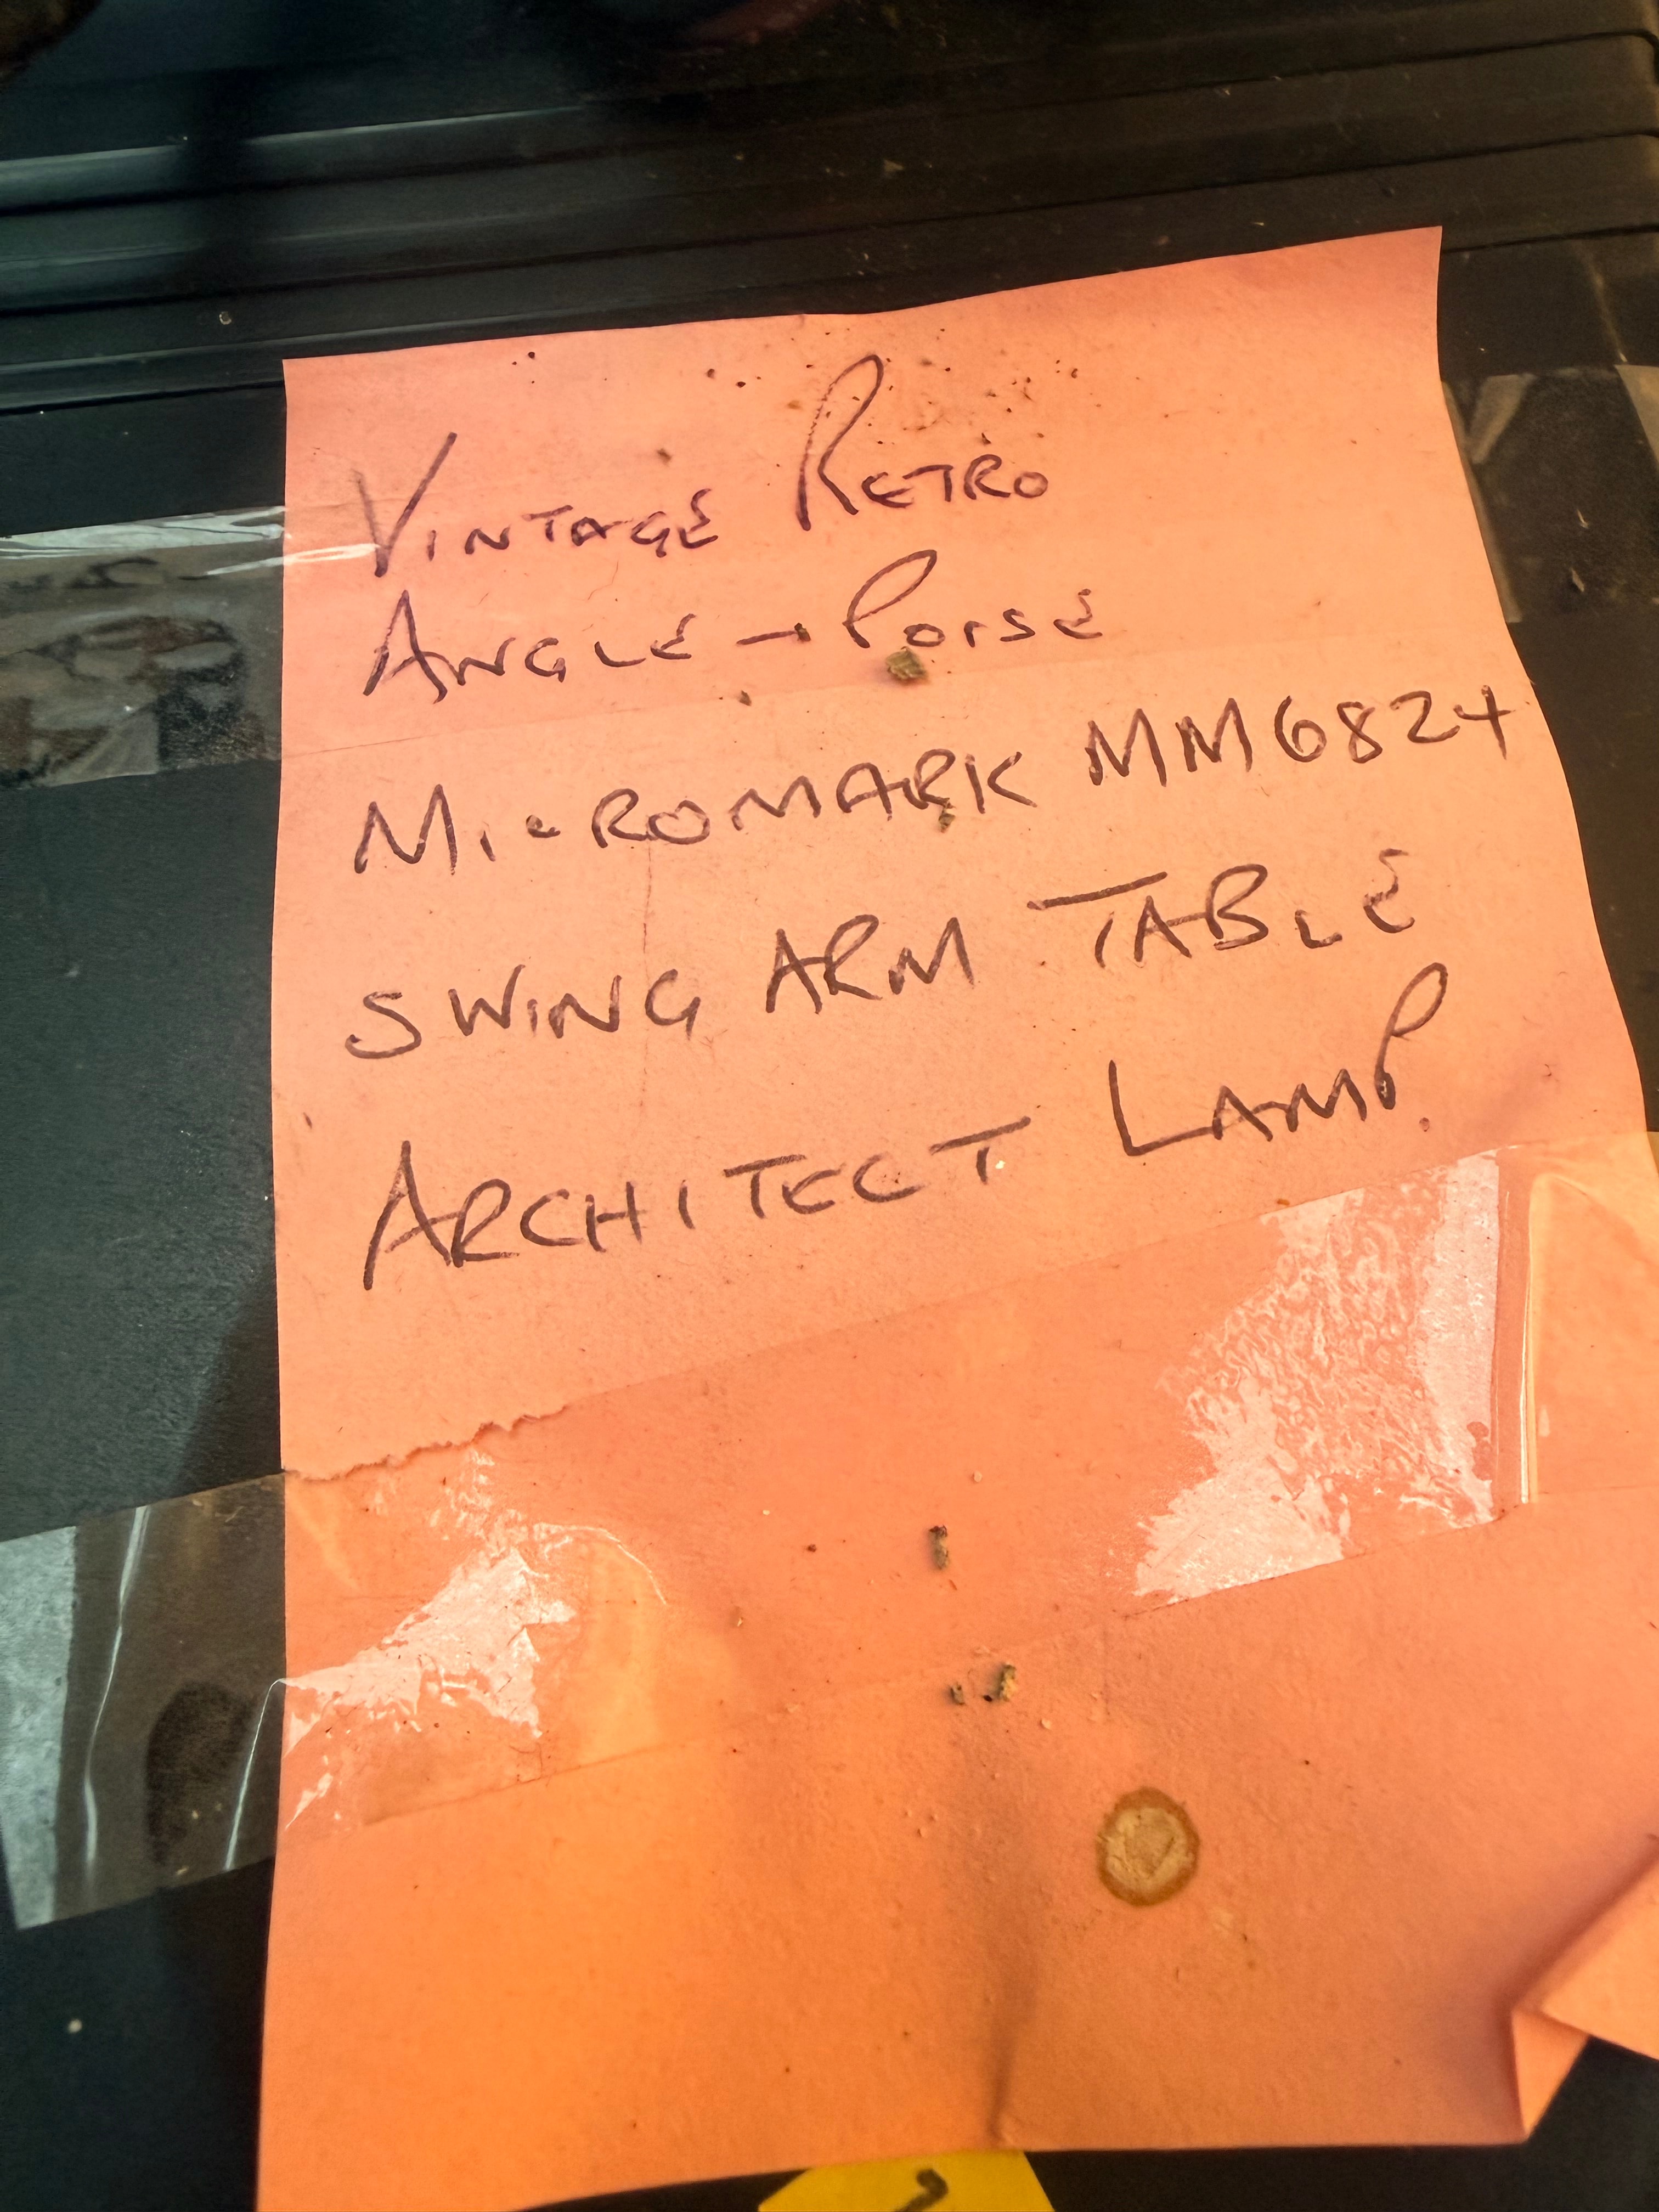 VINTAGE RETRO
ANGLE-POISE
MICROMARK MM6824
SWING ARM TABLE
ARCHITECT LAMP.